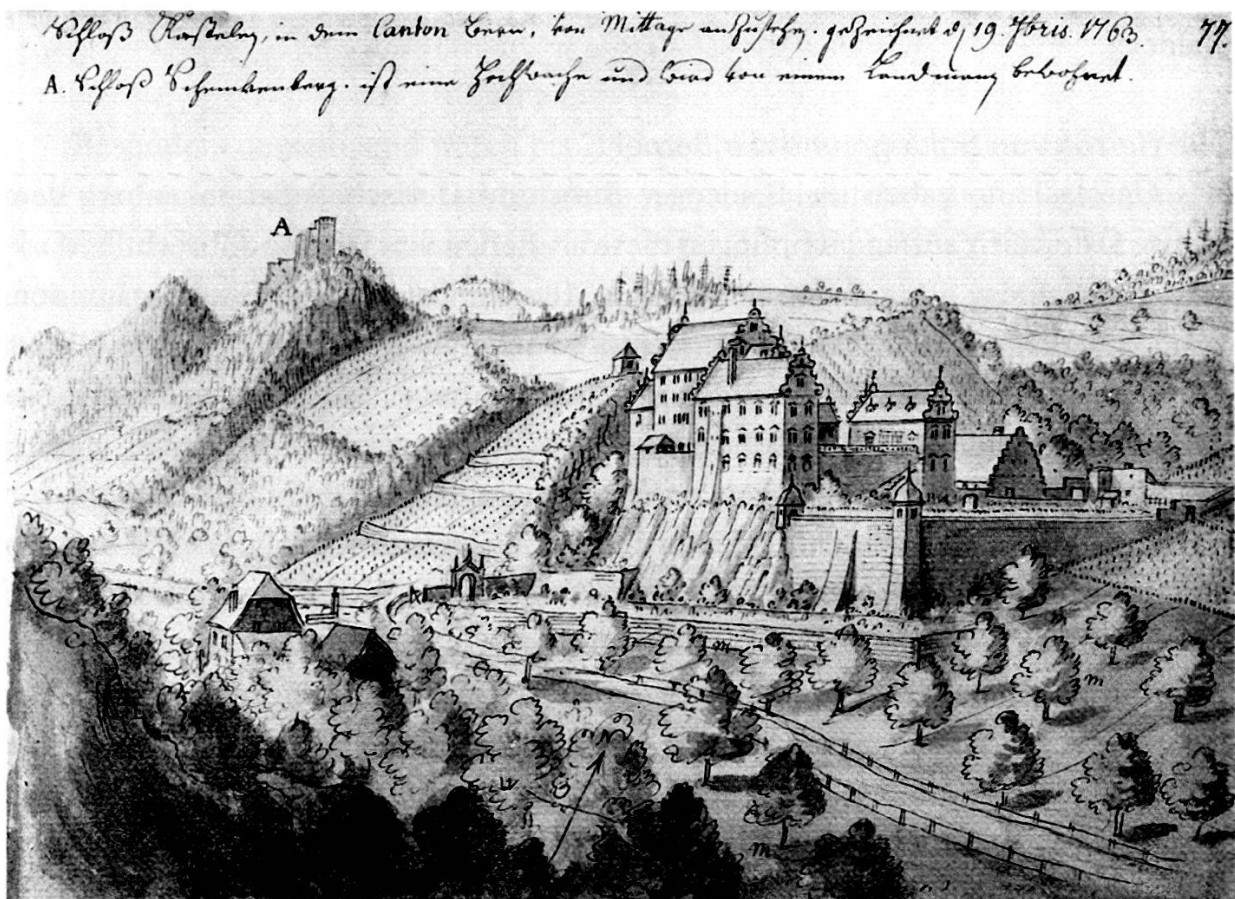 Schloß Kastelen, in dem Canton Bern, von Mittage anzusehen. gezeichnet d, 19. 7bris. 1763. 77.
A. Schloß Schenkenberg. ist eine Hochwache und wird von einem Landmann bewohnet.
A
m
m
m